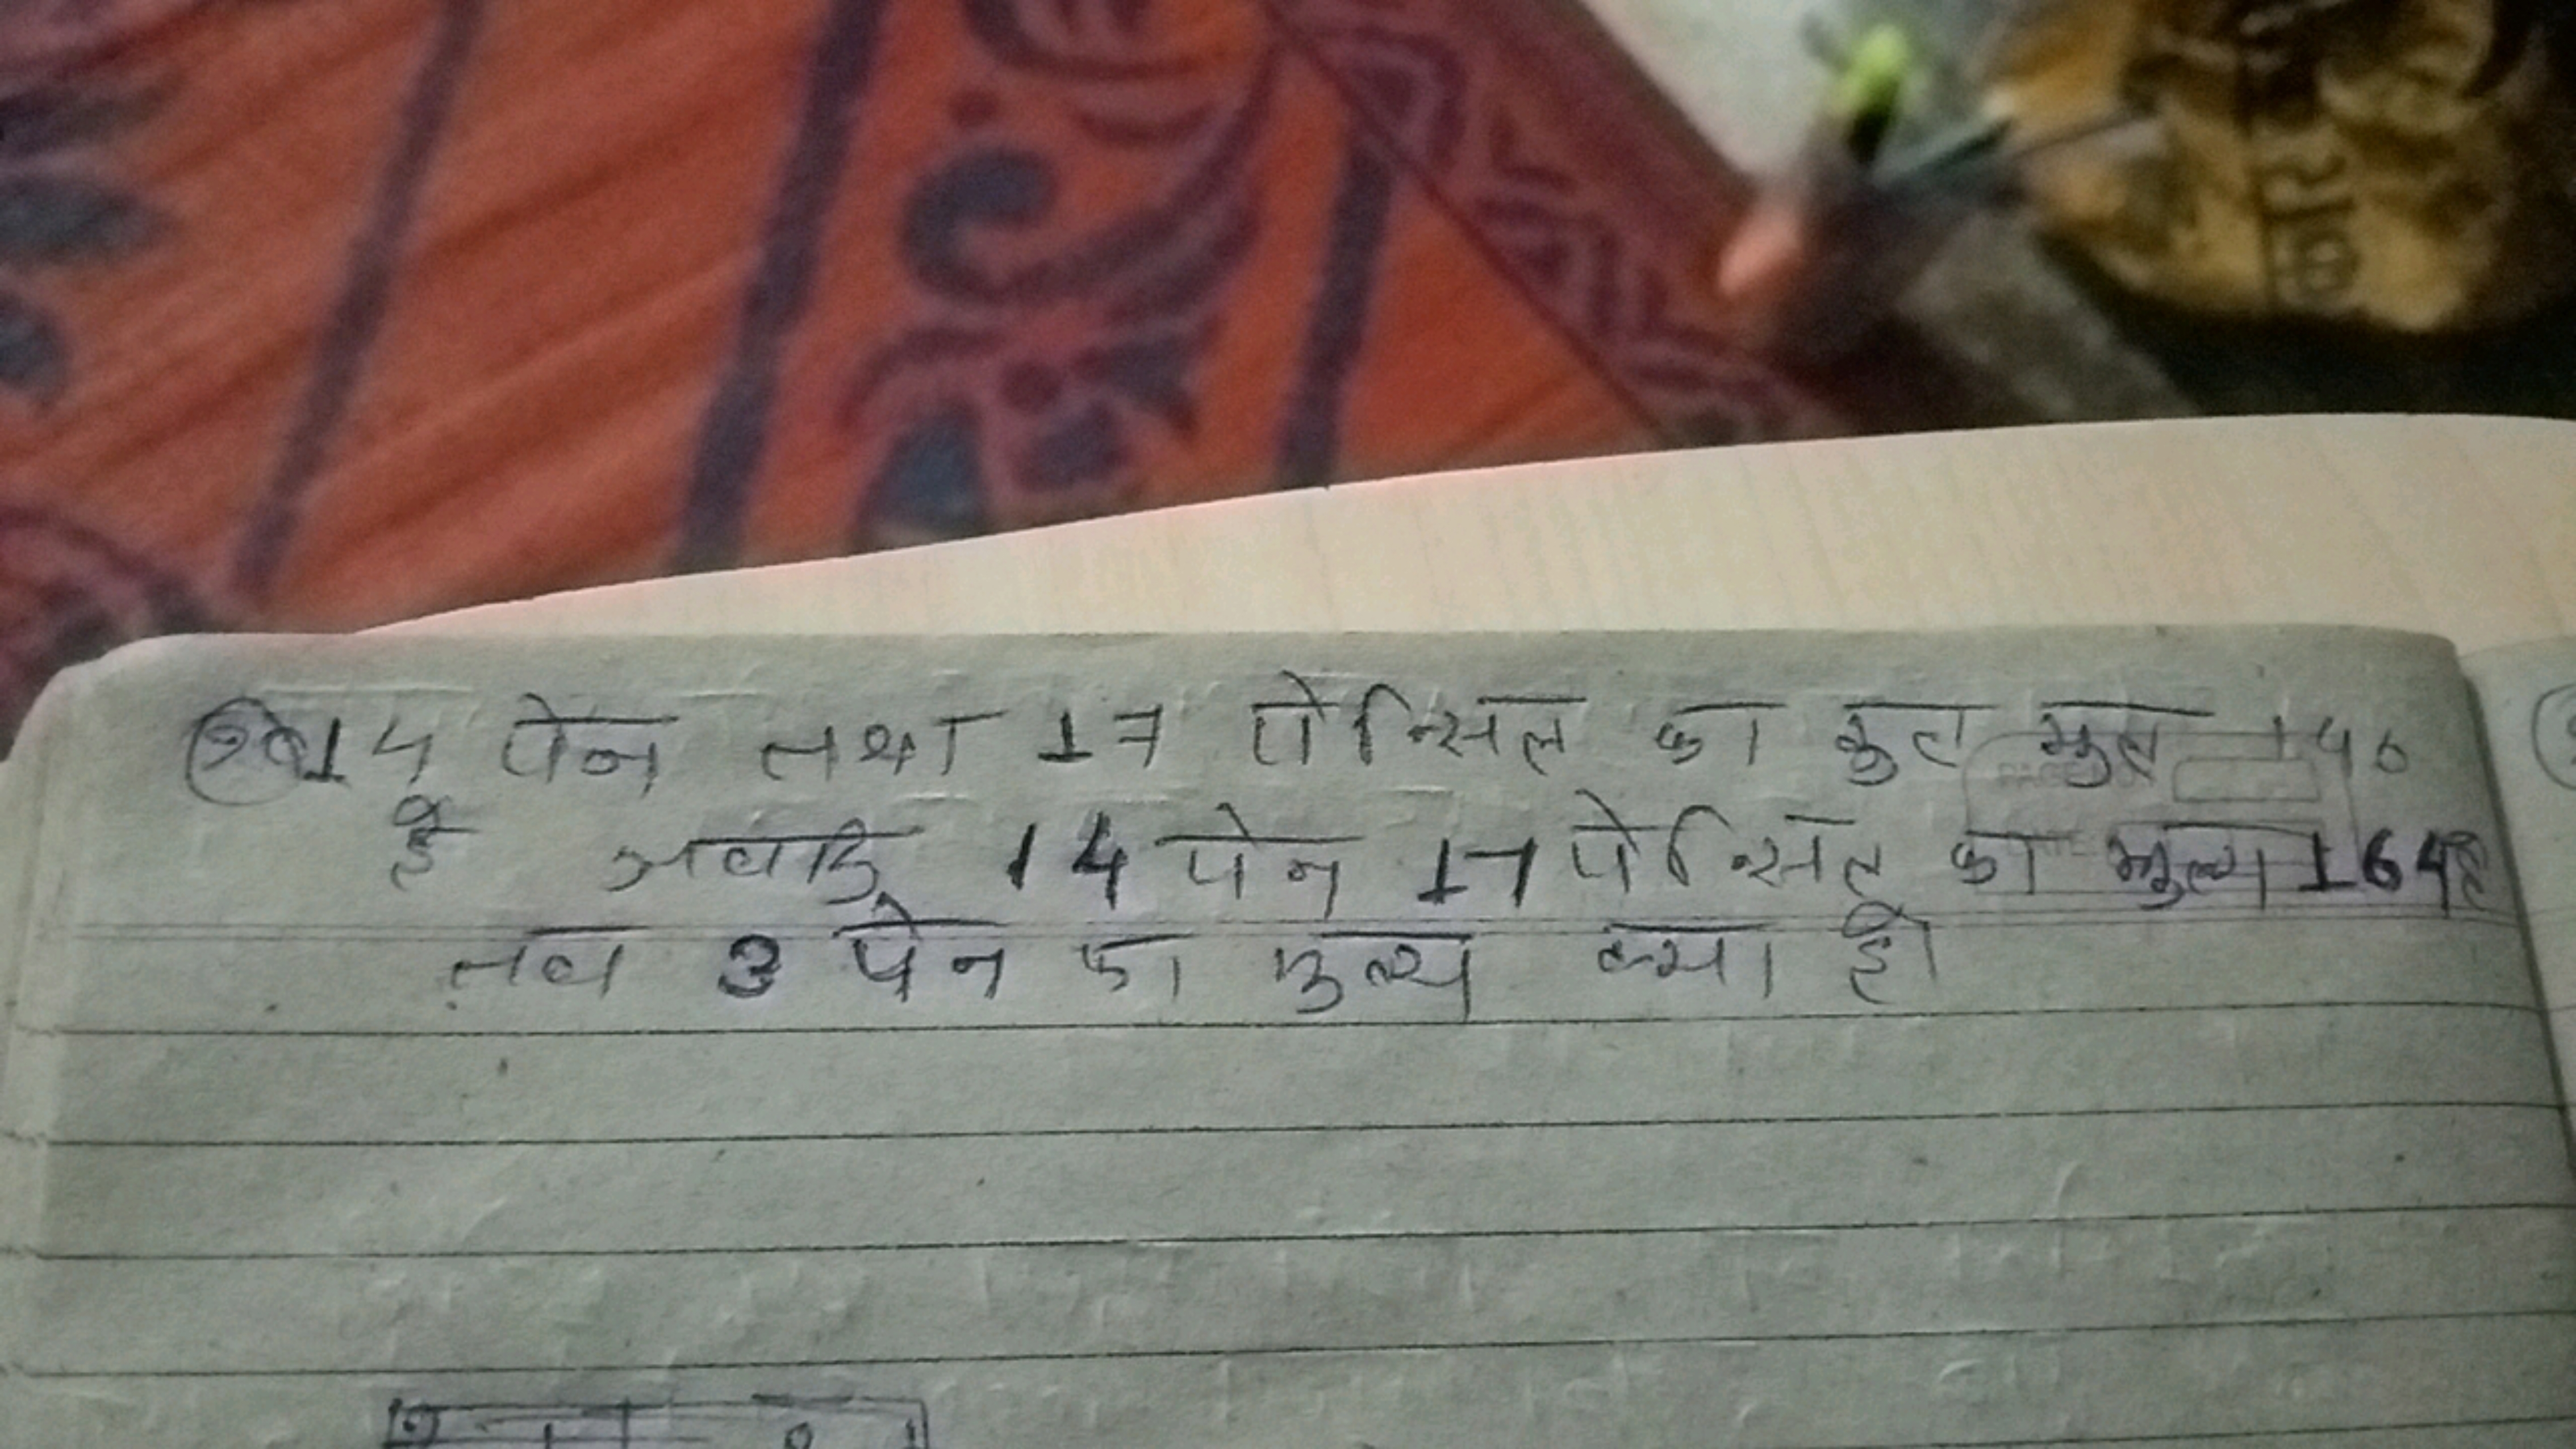 14 पेन तथा 17 पेन्सिल का कुल मुल 146
है जबकि 14 पेन 17 पेन्सिल का मुल्य 164है
तब 3 पेन का मुल्य क्या है।